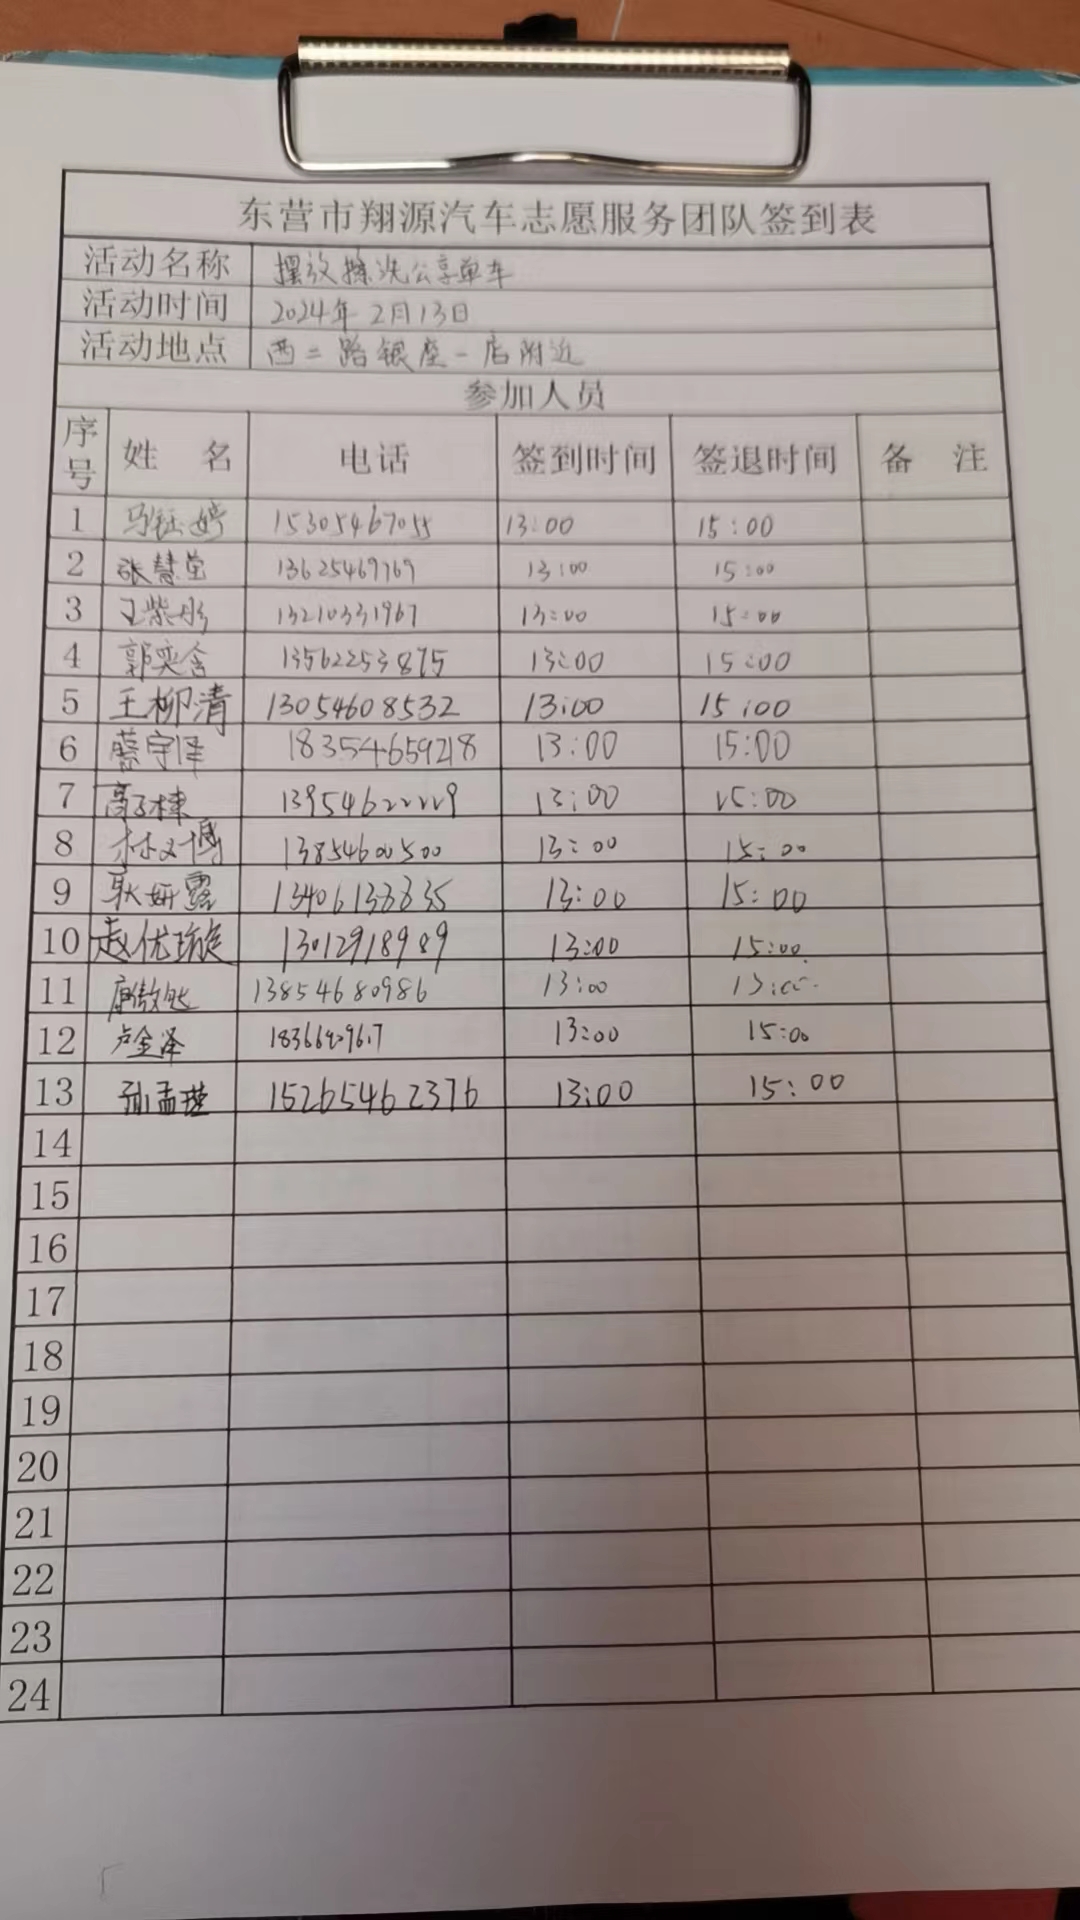 东营市翔源汽车志愿服务团队签到表
活动名称 摆放擦洗公享单车
活动时间 2024年2月13日
活动地点 西二路银座一店附近
参加人员
序号 姓 名 电话 签到时间 签退时间 备 注
1 马钰婷 15305467055 13:00 15:00
2 张慧莹 13625469769 13:00 15:00
3 王紫彤 13210331967 13:00 15:00
4 郭奕含 13562253875 13:00 15:00
5 王柳清 13054608532 13:00 15:00
6 蔡宇泽 18354659218 13:00 15:00
7 高子棟 13954622229 13:00 15:00
8 林文博 13854600500 13:00 15:00
9 耿妍露 13406133835 13:00 15:00
10 赵优璇 13012918989 13:00 15:00
11 13854680986 13:00
12 卢金泽 13:00 15:00
13 孙孟瑾 15265462376 13:00 15:00
14
15
16
17
18
19
20
21
22
23
24